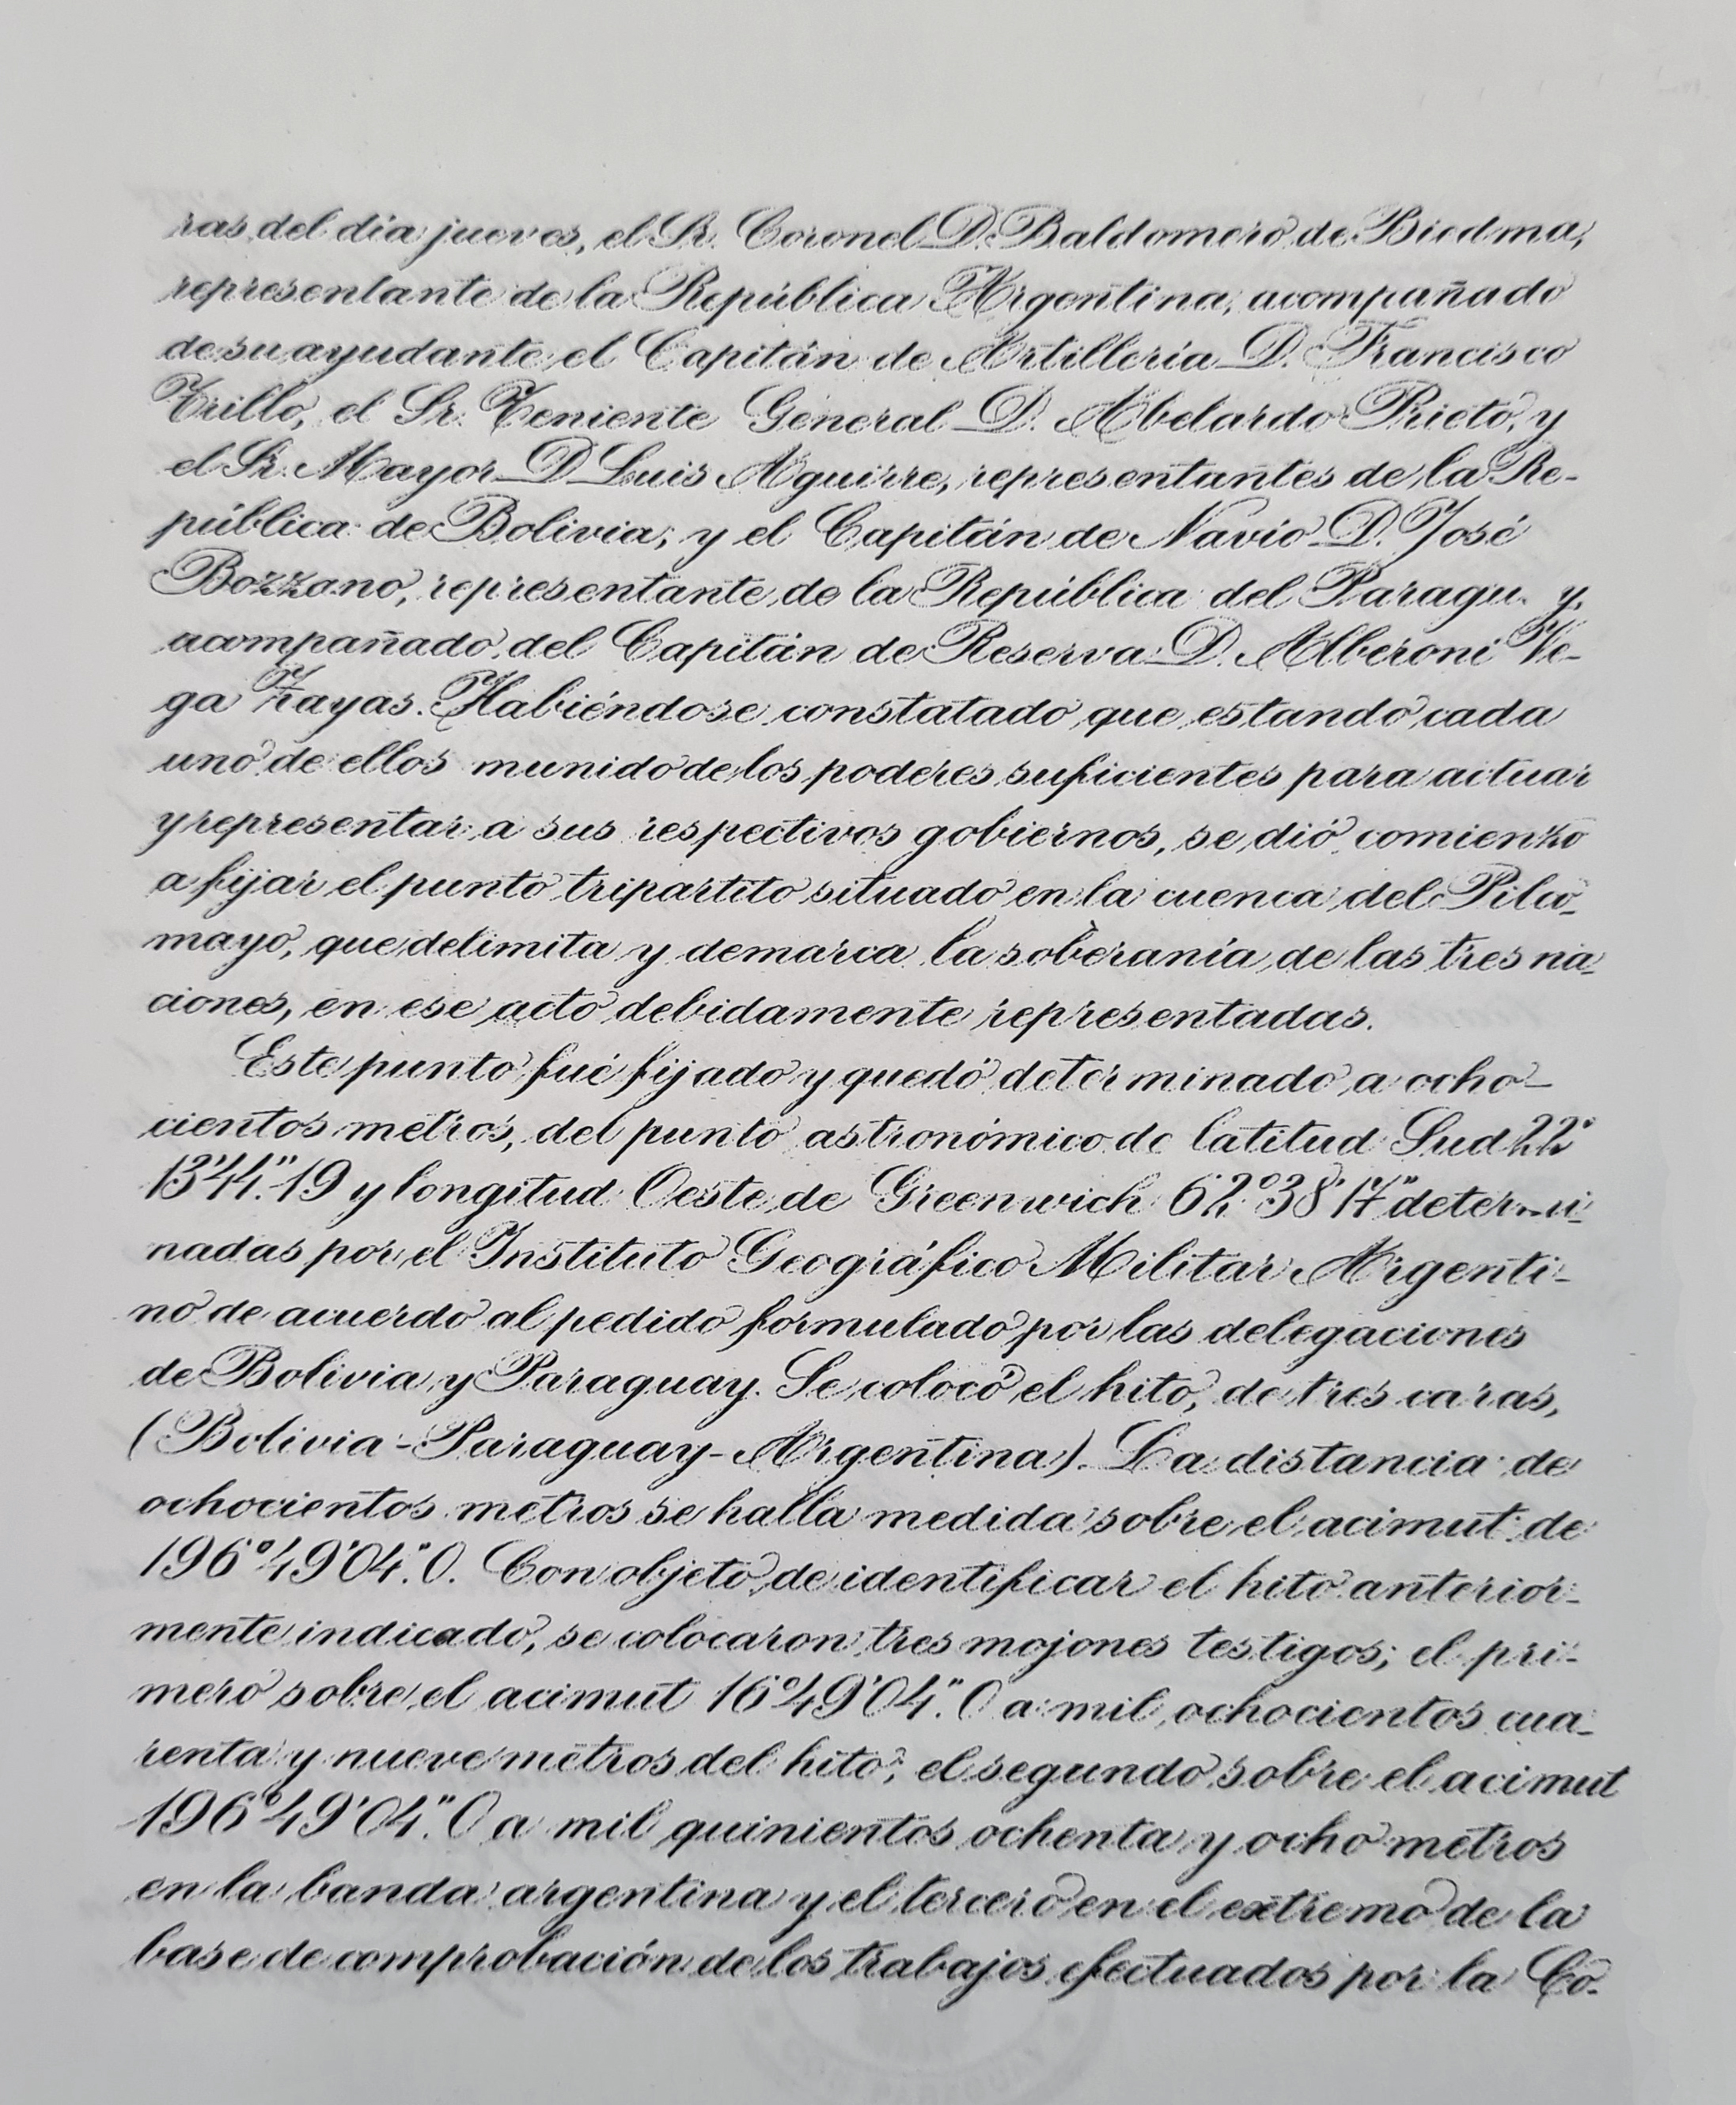 ras del día jueves, el Sr. Coronel D. Baldomero de Biedma,
representante de la República Argentina, acompañado
de su ayudante el Capitán de Artillería D. Francisco
Trillo, el Sr. Teniente General D. Abelardo Prieto, y
el Sr. Mayor D Luis Aguirre, representantes de la Re-
pública de Bolivia; y el Capitán de Navío D. José
Bozzano, representante de la República del Paraguay,
acompañado del Capitán de Reserva D. Alberoni Ve-
ga Zayas. Habiéndose constatado que estando cada
uno de ellos munido de los poderes suficientes para actuar
y representar a sus respectivos gobiernos, se dió comienzo
a fijar el punto tripartito situado en la cuenca del Pilco-
mayo, que delimita y demarca la soberanía de las tres na-
ciones, en ese acto debidamente representadas.
Este punto fué fijado y quedó determinado a ocho-
cientos metros, del punto astronómico de latitud Sud 22°
13'44".19 y longitud Oeste de Greenwich 62°38'17" determi-
nadas por el Instituto Geográfico Militar Argenti-
no de acuerdo al pedido formulado por las delegaciones
de Bolivia y Paraguay. Se colocó el hito, de tres caras,
(Bolivia-Paraguay-Argentina). La distancia de
ochocientos metros se halla medida sobre el acimut de
196°49'04".0. Con objeto de identificar el hito anterior-
mente indicado, se colocaron tres mojones testigos; el pri-
mero sobre el acimut 16°49'04".0 a mil ochocientos cua-
renta y nueve metros del hito; el segundo sobre el acimut
196°49'04".0 a mil quinientos ochenta y ocho metros
en la banda argentina y el tercero en el extremo de la
base de comprobación de los trabajos efectuados por la Co-